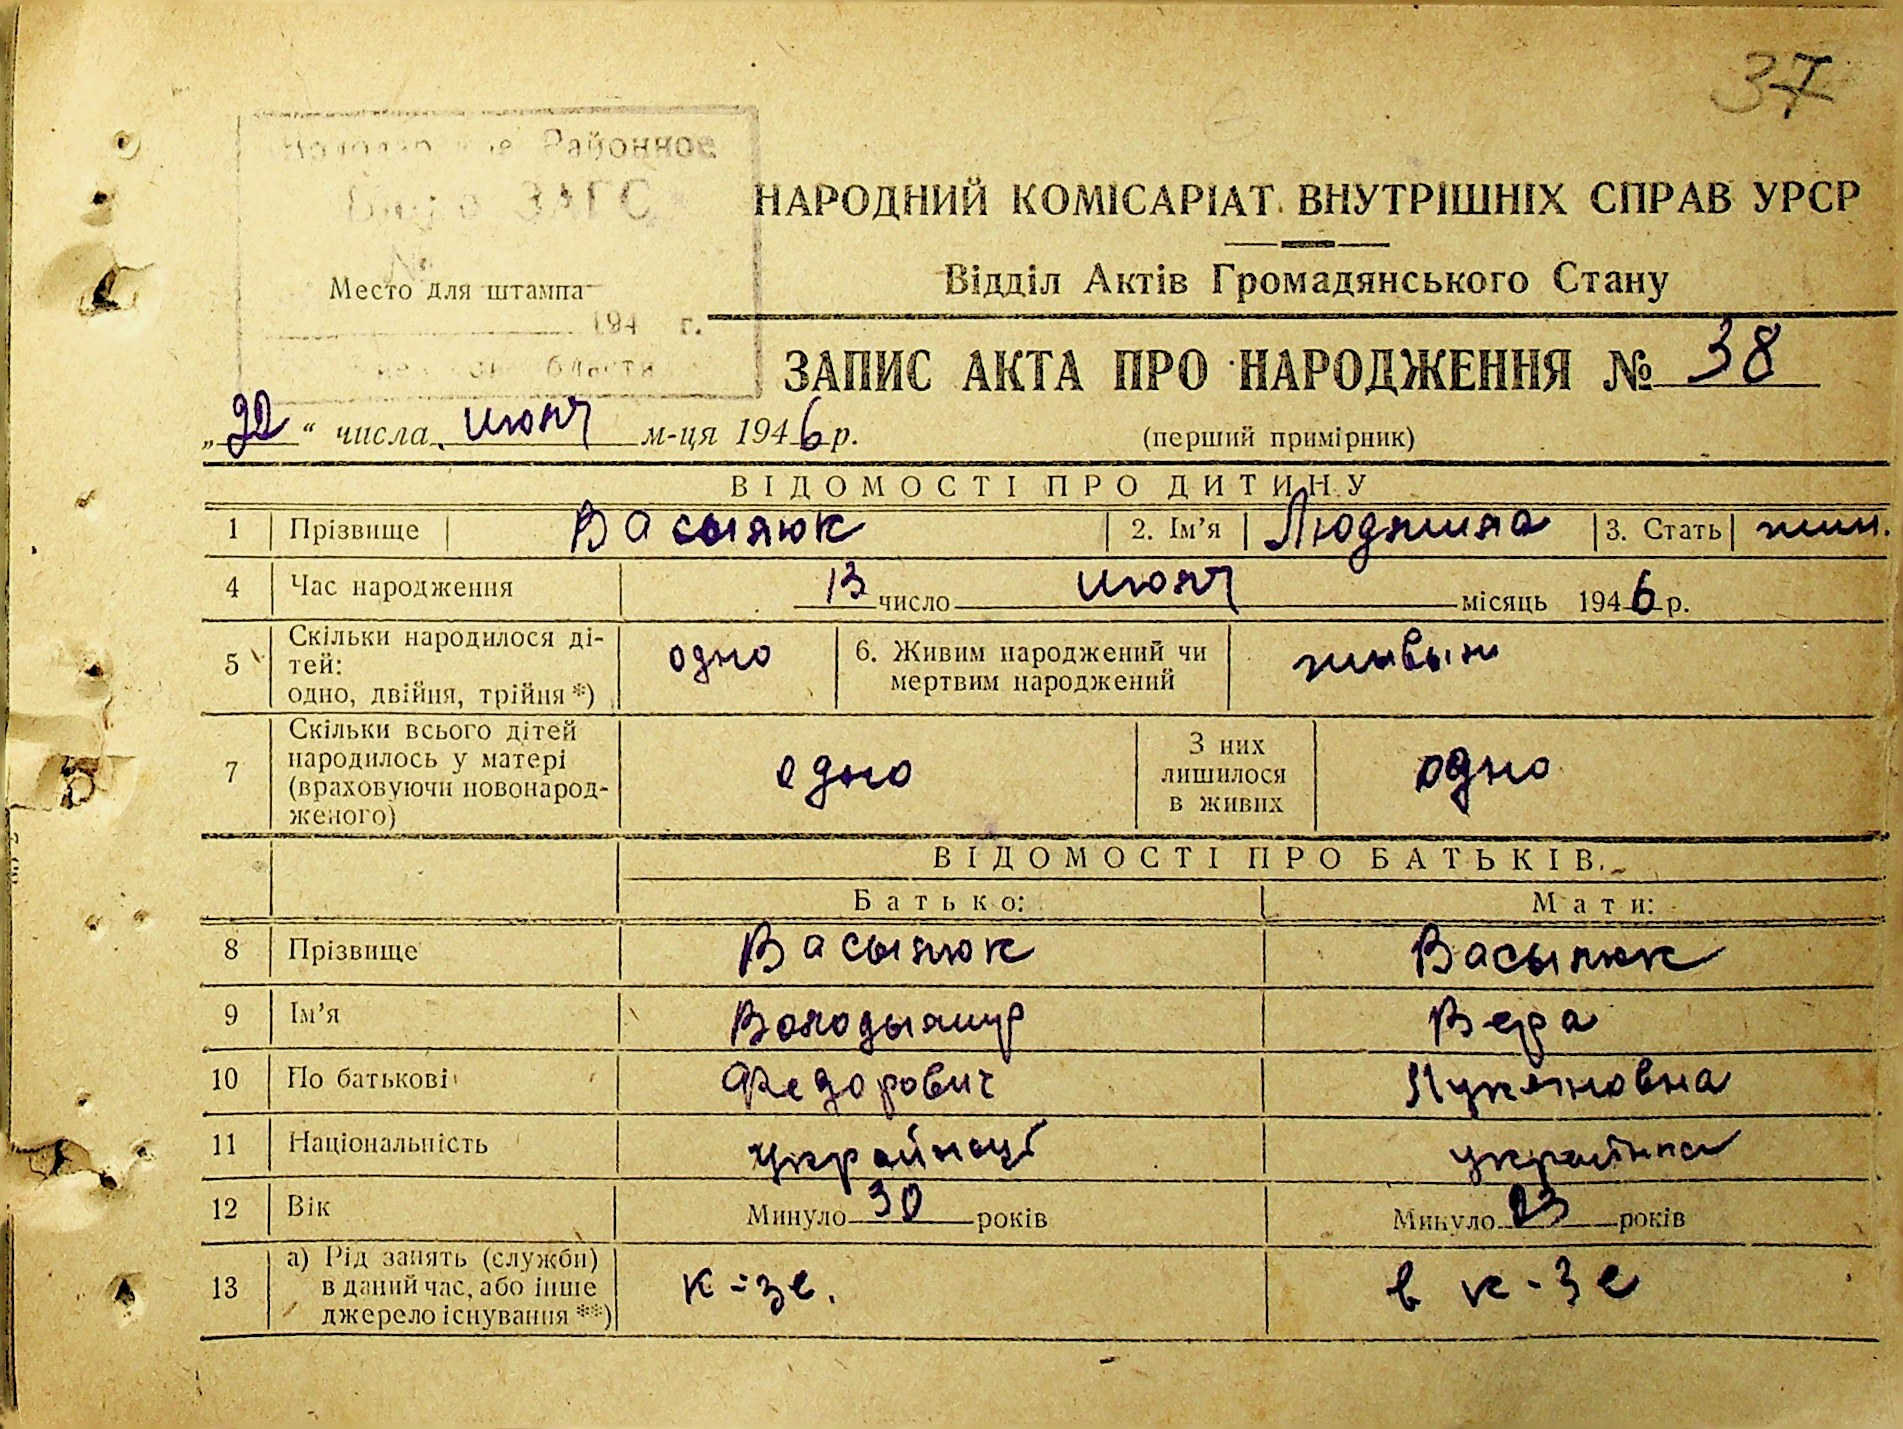 37
Районное
ЗАГС
№
Место для штампа
194 г.
НАРОДНИЙ КОМІСАРІАТ ВНУТРІШНІХ СПРАВ УРСР
Відділ Актів Громадянського Стану
ЗАПИС АКТА ПРО НАРОДЖЕННЯ № 38
„22“ числа июня м-ця 1946 р. (перший примірник)
ВІДОМОСТІ ПРО ДИТИНУ
1 Прізвище Васылюк 2. Ім'я Людмила 3. Стать жин.
4 Час народження 13 число июня місяць 1946 р.
5 Скільки народилося ді-
тей:
одно, двійня, трійня *) одно 6. Живим народжений чи
мертвим народжений живым
7 Скільки всього дітей
народилось у матері
(враховуючи новонарод-
женого) одно З них
лишилося
в живих одно
ВІДОМОСТІ ПРО БАТЬКІВ.
Батько: Мати:
8 Прізвище Васылюк Васылюк
9 Ім'я Володымир Вера
10 По батькові Федорович Лукяновна
11 Національність украйнец украінка
12 Вік Минуло 30 років Минуло 23 років
13 а) Рід занять (служби)
в даний час, або інше
джерело існування **) к-зе. в к-зе